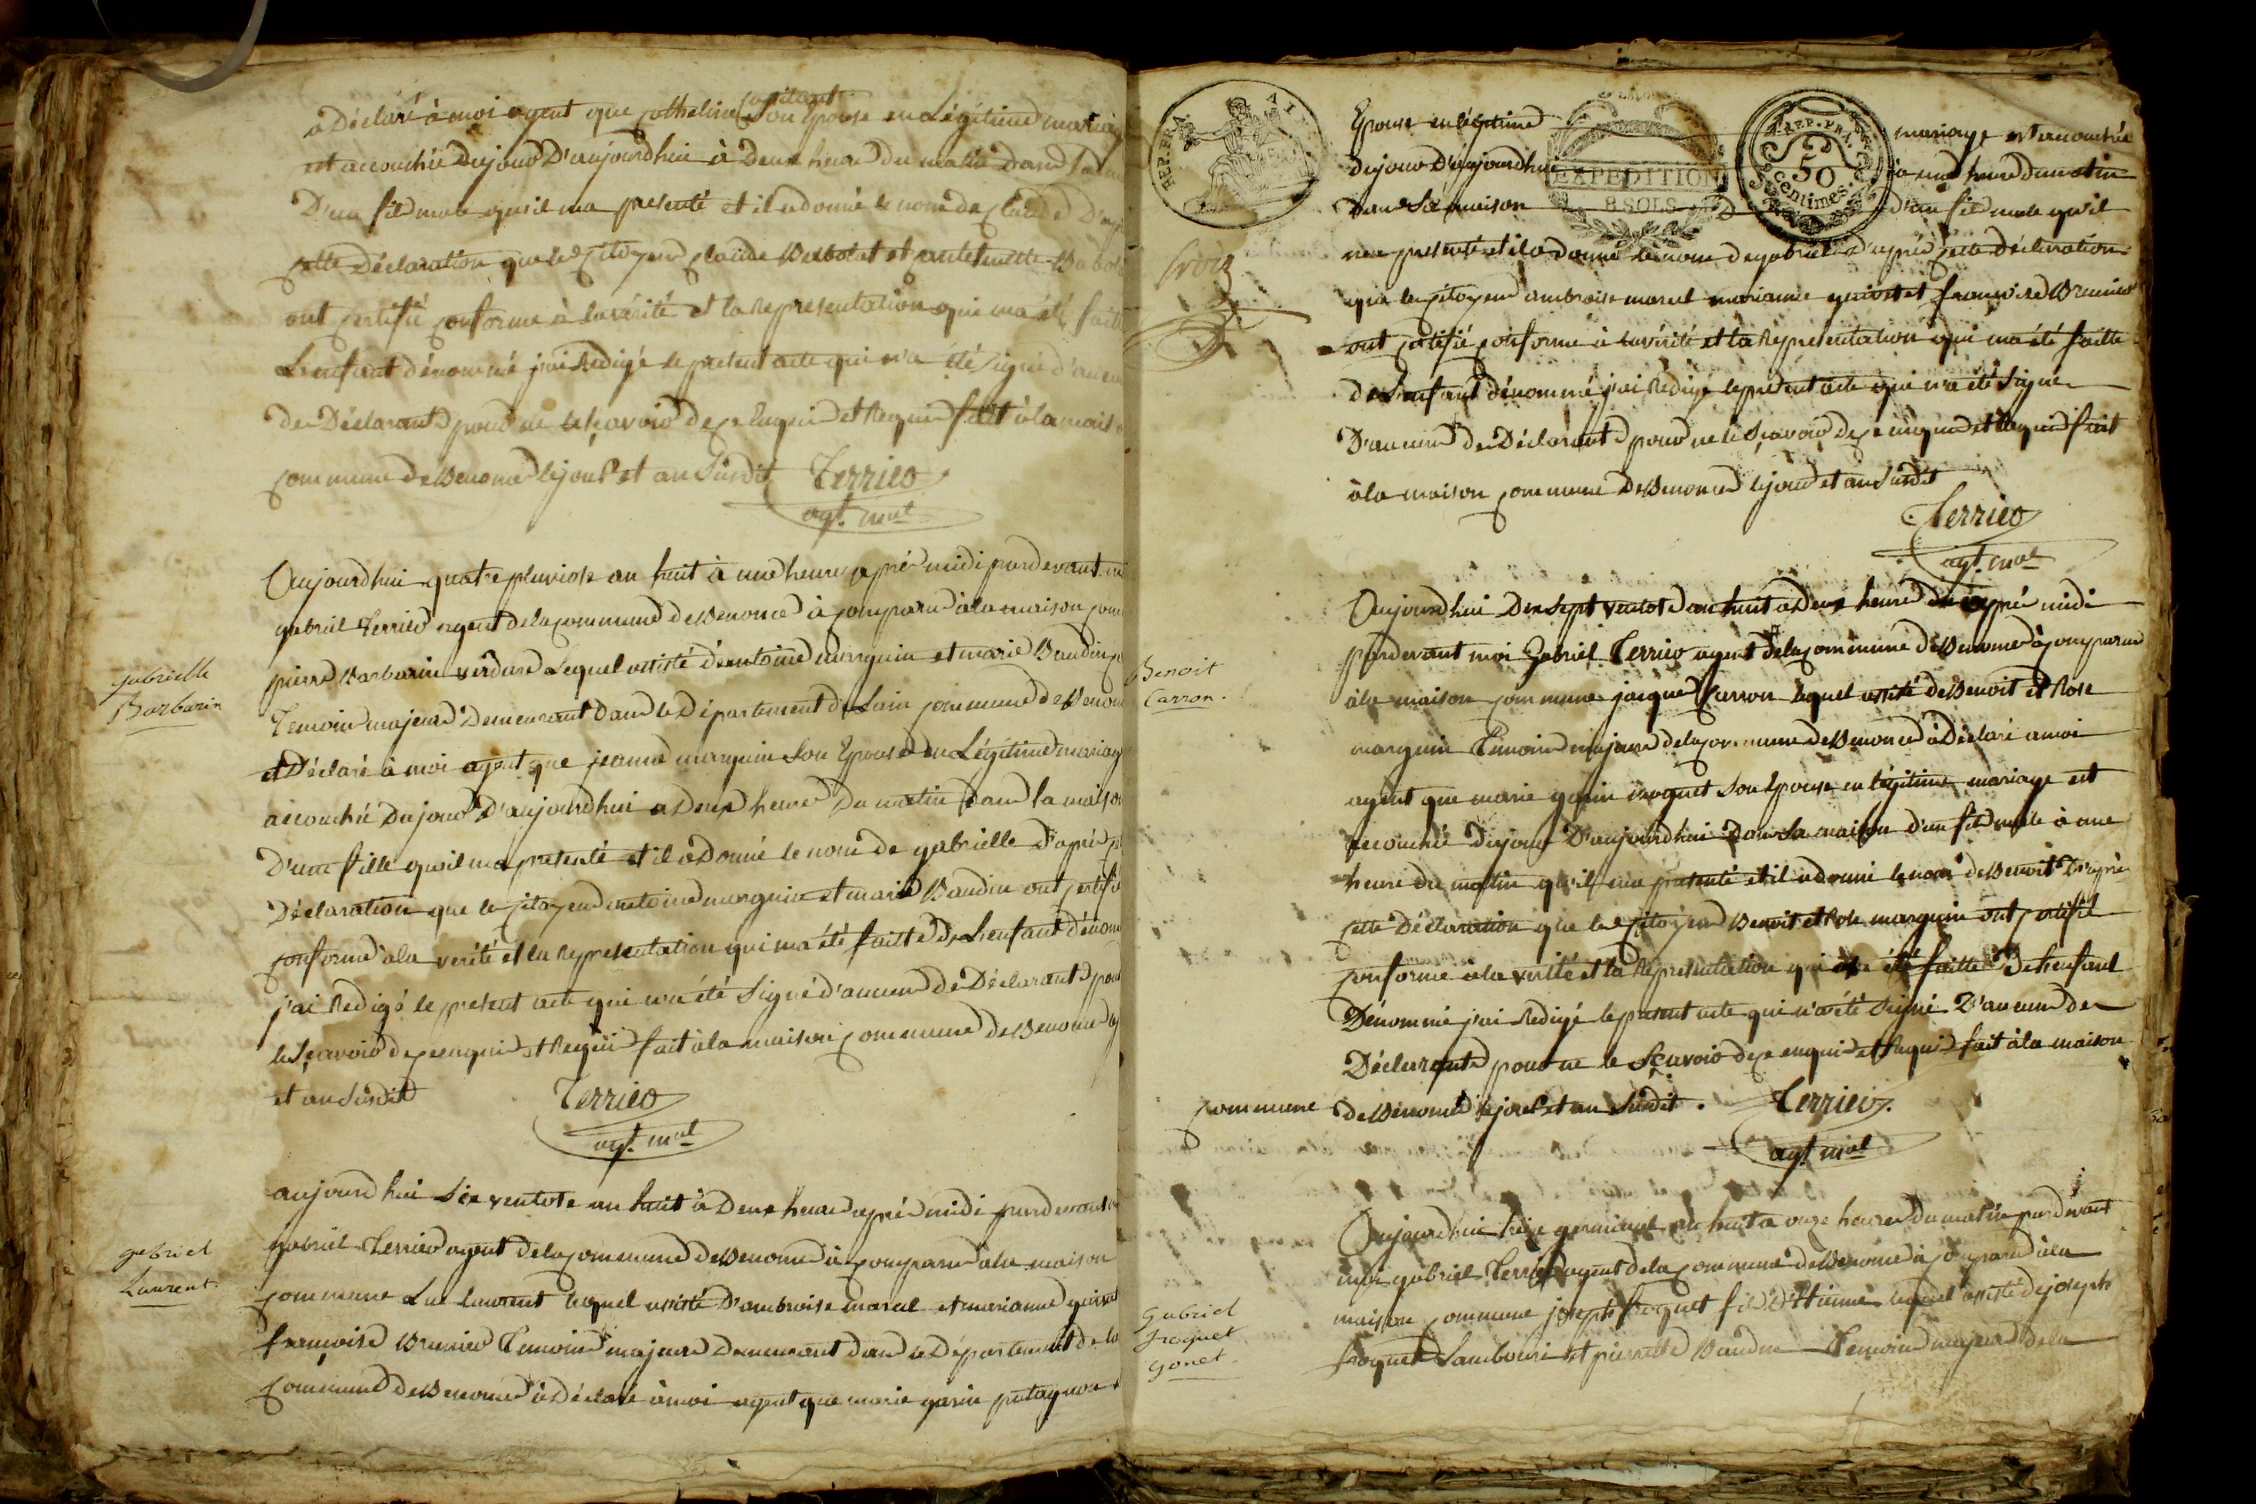 a Déclaré à moi agent que Son Epouse en Légitime mariag
est accouchée du jour D'aujourdhui à Deux heure du matin dans Sa
D'un fils male quil ma presenté et il a donné le nom de Claude D'ap
cette Déclaration que le Citoyen Claude et antelmette
ont certifié conforme à la vérité et la Representation qui ma été faitt
L'enfant dénommé j'ai Redigé le present acte qui n'a été Signé d'aucun
des Déclarant pour ne le Sçavoir de ce Enquis et Requis fait à la maison
commune de Benonce le jour et an Susdit Terrier
agt. mal
Gabrielle
Barbarin
Aujourdhui quatre pluviose an huit à une heure aprés midi pardevant
gabriel Terrier agent de la commune de Benonce à comparu à la maison com
pierre Barbarin verdure Lequel assisté d'antoine marguin et marie Baudin
Temoin majeur Demeurant Dans le Département de Lain commune de Benon
et Déclaré à moi agent que jeanne marguin Son Epouse en Légitime mariag
accouché Du jour D'aujourdhui a Deux heure Du matin Dans Sa maison
D'une fille quil ma presenté et il a Donné le nom de gabrielle D'aprés
Déclaration que le Citoyen antoine marguin et marie Baudin ont certifié
conforme à la verité et la Representation qui ma été faitte de L'enfant dénom
j'ai Redigé le present acte qui n'a été Signé d'aucun de Déclarant pour
le Sçavoir de ce enquis et Requis fait à la maison commune de Benonce
et an Susdit Terrier
agt. mal
gabriel
Laurent
aujourdhui Six ventose an huit à Deux heure aprés midi pardevant
gabriel Terrier agent de la commune de Benonce à comparu à la maison
commune Luc Laurent Lequel assisté D'ambroise marcel et marianne
françoise Brunier Temoin majeur Demeurant dans le Département de
commune de Benonce à Déclaré à moi agent que marie garin
REP. FRA
Epouse en légitime mariage est accouchée
du jour D'aujourdhui à une heure du matin
Dans Sa maison D'un fils male qu'il
EXPEDITION
8 SOLS
REP. FRA.
50
centimes
ma presenté et il a donné le nom de gabriel d'aprés cette déclaration
que le Citoyen ambroise marcel marianne et françoise Brunier
ont certifié conforme à la vérité et la Representation qui ma été faitte
de L'enfant dénommé j'ai Redigé le present acte qui n'a été Signé
D'aucun des Déclarant pour ne le Sçavoir de ce enquis et Requis fait
à la maison commune de Benonce le jour et an Susdit
Terrier
agt. mal
Benoit
Carron.
Aujourdhui Dix sept ventose an huit à Deux heure aprés midi
pardevant moi Gabriel Terrier agent de la commune de Benonce à comparu
à la maison commune jacque Carron Lequel assité de Benoit et Rose
marguin Témoin majeur de la commune de Benonce à Déclaré a moi
agent que marie garin Son Epouse en légitime mariage est
accouché Du jour D'aujourdhui Dans Sa maison d'un fils male à une
heure du matin qu'il ma presenté et il a donné le nom de Benoit D'aprés
cette Déclaration que le Citoyen Benoit et Rose marguin ont certifié
conforme à la vérité et la Representation qui été faitte De L'enfant
Dénommé j'ai Redigé le present acte qui n'a été Signé D'aucun de
Déclarant pour ne le Sçavoir de ce enquis et Requis fait à la maison
commune de Benonce le jour et an Susdit. Terrier.
agt. mal
Gabriel
froquet
gonet.
Aujourdhui germinal an huit à onze heure du matin pardevant
moi gabriel Terrier agent de la commune de Benonce à comparu à la
maison commune joseph froquet fils d'Etienne Lequel assisté de joseph
froquet et pierrette Baudin Temoin majeur De la